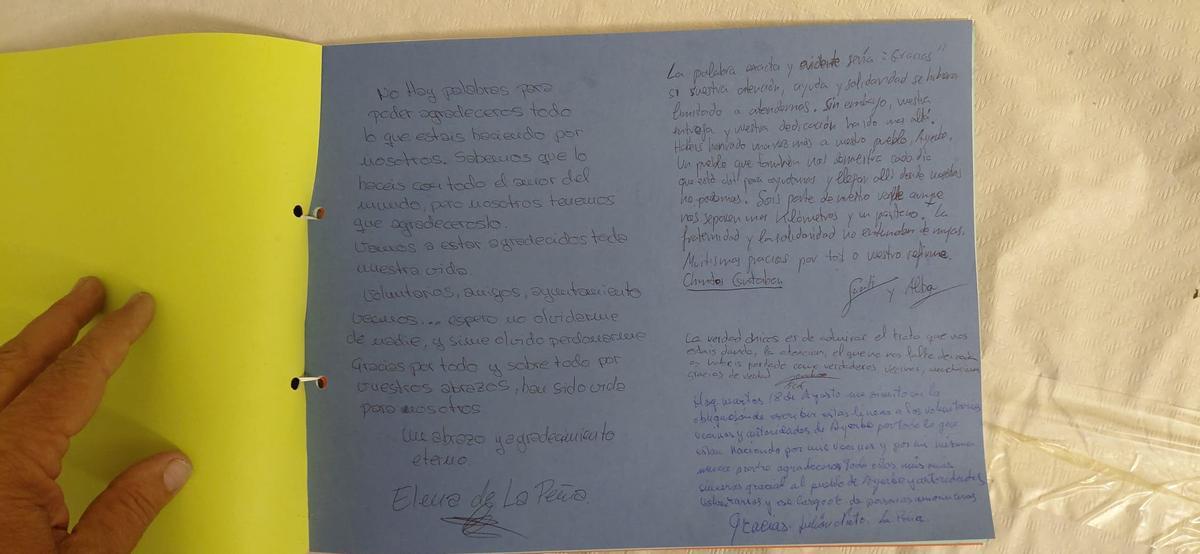 No Hay palabras para
poder agradeceros todo
lo que estais haciendo por
nosotros. Sabemos que lo
haceis con todo el amor del
mundo, pero nosotros tenemos
que agradeceroslo.
Vamos a estar agradecidos toda
nuestra vida.
Voluntarios, amigos, ayuntamiento
vecinos... espero no olvidarme
de nadie, y si me olvido perdonarme
Gracias por todo y sobre todo por
vuestros abrazos, han sido vida
para nosotros
Un abrazo y agradecimiento
eterno.
Elena de La Peña.
La palabra exacta y evidente sería "Gracias"
si vuestra atención, ayuda y solidaridad se hubiera
limitado a atendernos. Sin embargo, vuestra
entrega y vuestra dedicación ha ido mas allá.
Habeis honrado una vez mas a vuestro pueblo, Ayerbe.
Un pueblo que tambien nos demuestra cada dia
que está ahí para ayudarnos y llegar allí donde nosotros
no podemos. Sois parte de nuestro aunque
nos separen unos kilómetros y un pantano. La
fraternidad y la solidaridad no entienden de
Muchisimas gracias por tot o vuestro
y Alba
La verdad chicos es de admirar el trato que nos
estais dando, la atención, el que no nos falte de nada
os habeis portado como verdaderos vecinos, muchisimas
gracias de verdad
Hoy martes 18 de Agosto me siento en la
obligacion de escribir estas lineas a los voluntarios
vecinos y autoridades de Ayerbe por todo lo que
estan Haciendo por mis vecinos y por mi mismo
agradeceros todo estos mas
sinceras gracias al pueblo de Ayerbe y autoridades
voluntarios y ese largo et de personas anonimas
Gracias. Julián Nieto. La Peña.